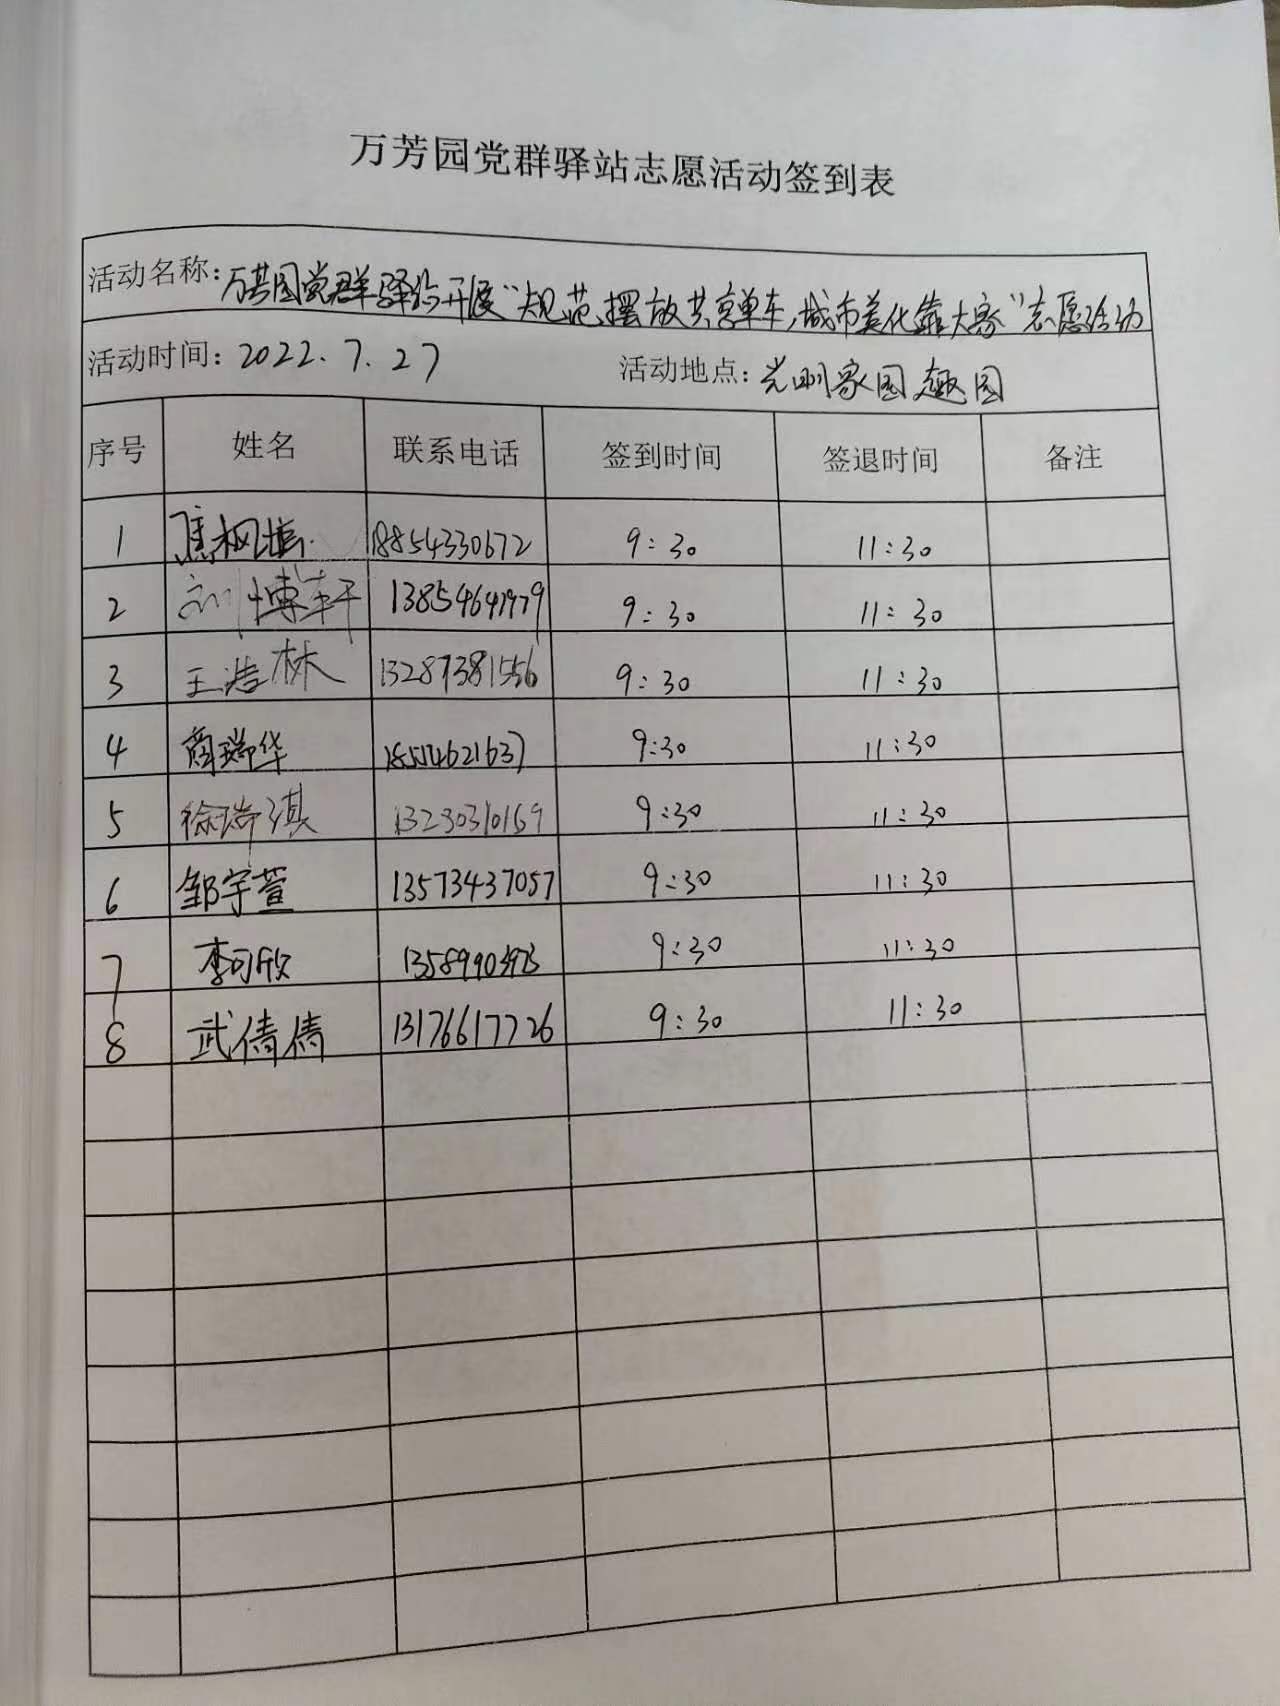 万芳园党群驿站志愿活动签到表
活动名称：万芳园党群驿站开展“规范摆放共享单车，城市美化靠大家”志愿活动
活动时间：2022.7.27 活动地点：光明家园趣园
序号 姓名 联系电话 签到时间 签退时间 备注
1 18854330672 9:30 11:30
2 刘博轩 13854641979 9:30 11:30
3 王浩林 13287381556 9:30 11:30
4 商瑞华 18554621637 9:30 11:30
5 徐瑞淇 13230310159 9:30 11:30
6 邹宇萱 13573437057 9:30 11:30
7 李可欣 9:30 11:30
8 武倩倩 13176617726 9:30 11:30